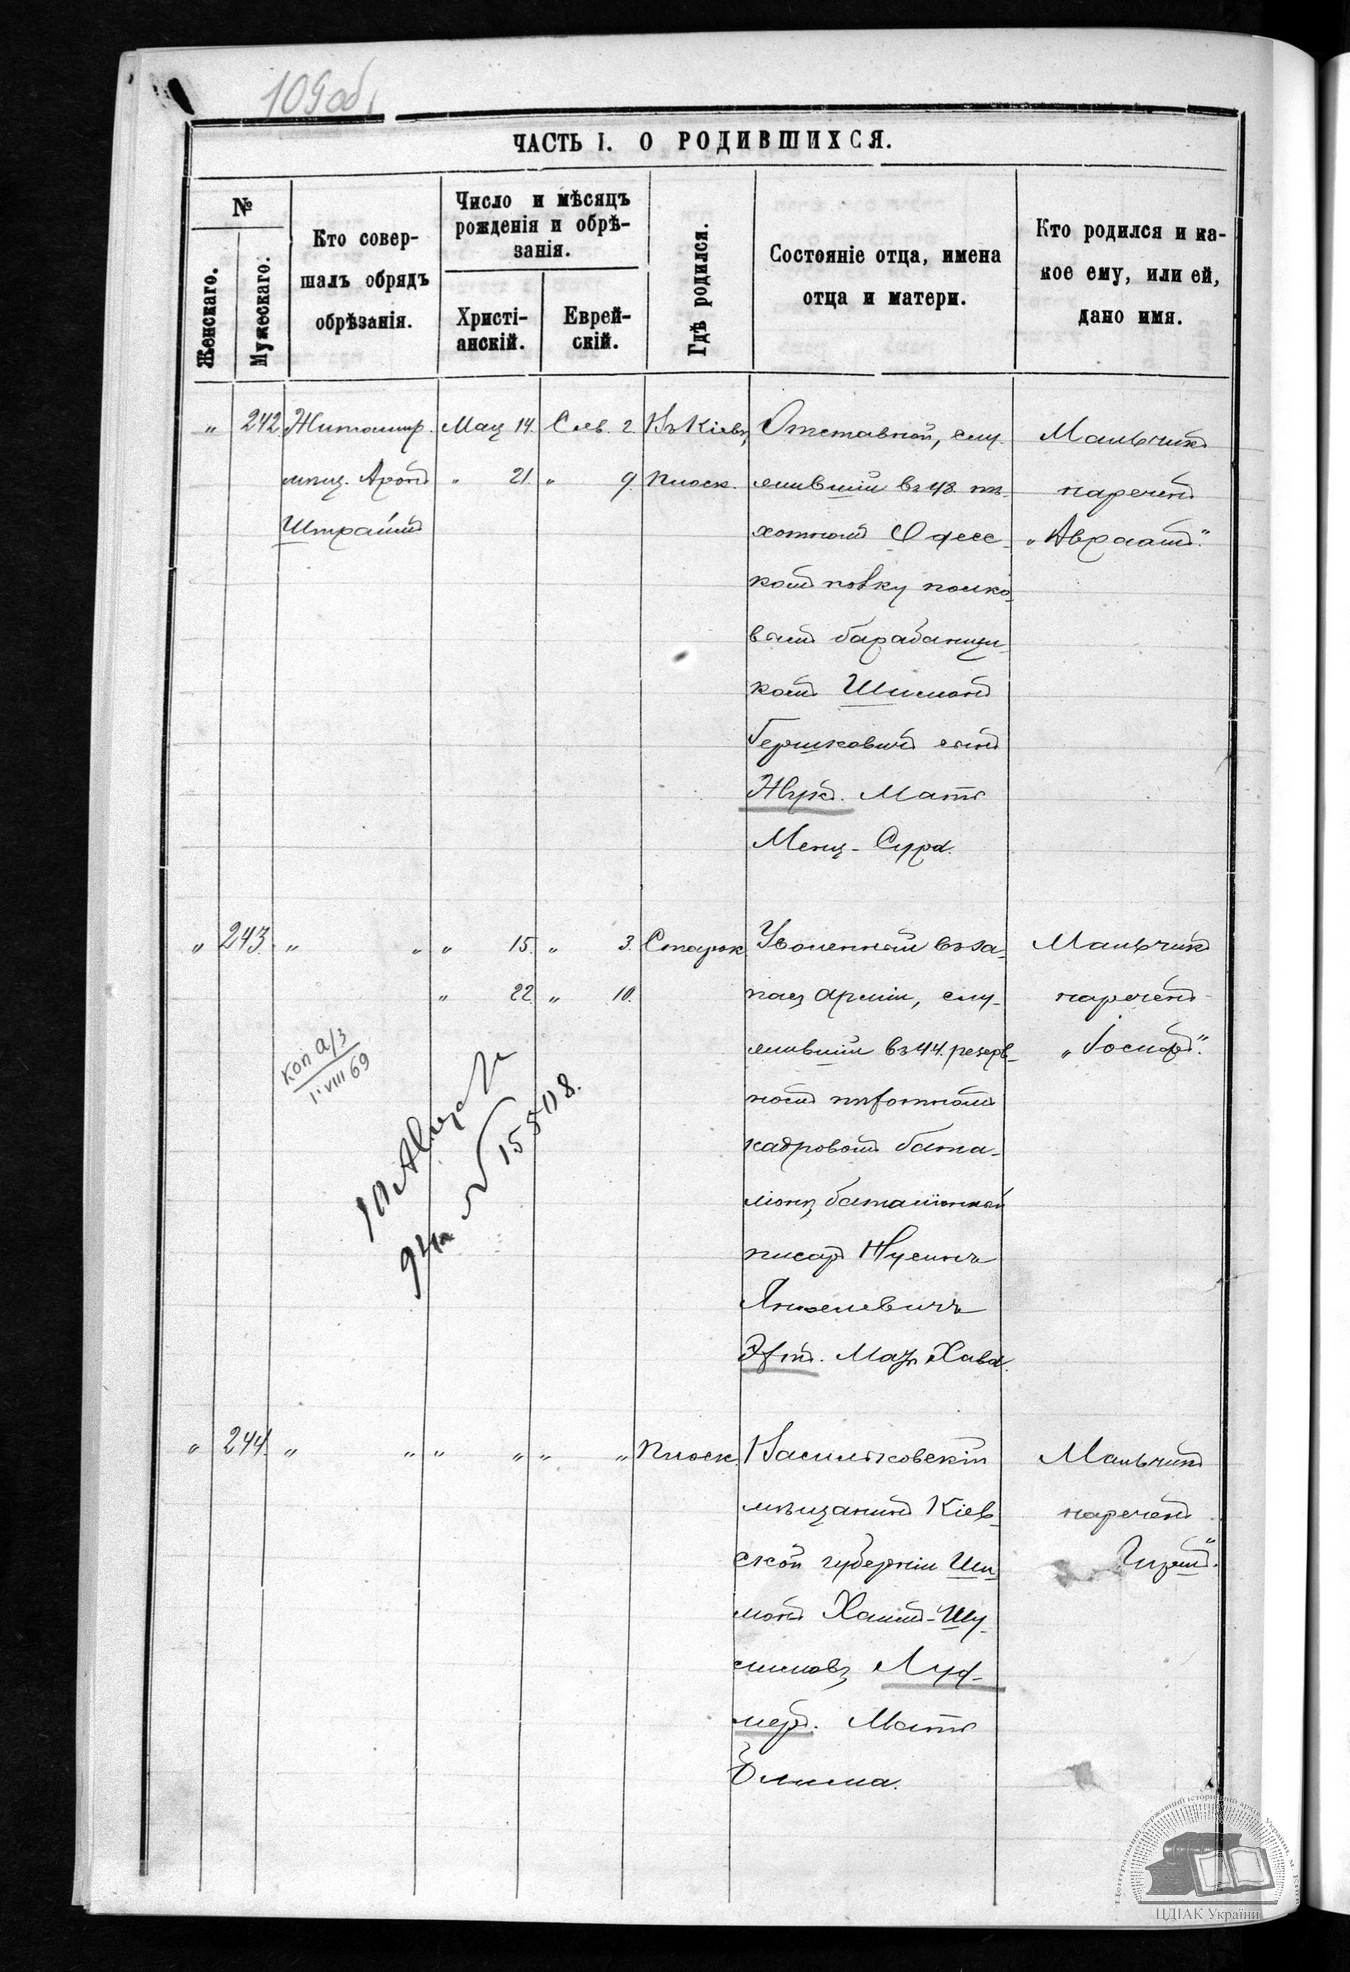 109 об.
ЧАСТЬ I. О РОДИВШИХСЯ.
№
Женскаго.
Мужескаго.
Кто совер-
шалъ обрядъ
обрѣзанія.
Число и мѣсяцъ
рожденія и обрѣ-
занія.
Христі-
анскій.
Еврей-
скій.
Гдѣ родился.
Состояніе отца, имена
отца и матери.
Кто родился и ка-
кое ему, или ей,
дано имя.
" 242. Житомир.
мѣщ. Аронъ
Штраймъ
Мая 14.
" 21.
Сив. 2.
" 9.
Въ Кіевѣ,
Плоск.
Отставной, слу-
жившій въ 48. пѣ-
хотномъ Одесс-
комъ полку полко-
вымъ барабанщи-
комъ Шимонъ
Гершковичъ сынъ
Жукъ. Мать
Менц-Сура.
Мальчикъ
нареченъ
„Авраамъ".
" 243. " "
" 15.
" 22.
" 3.
" 10.
Старок.
Уволенный въ за-
пасъ арміи, слу-
жившій въ 44. резерв-
номъ пѣхотномъ
кадровомъ бата-
ліонѣ, баталіонный
писарь Нусинъ
Янкелевичъ
Мать Хава.
Мальчикъ
нареченъ
„Іосифъ".
коп а/з
1.VIII 69
10 Августа
94 г. № 15508.
" 244. " " " " " "
Плоск.
Васильковскій
мѣщанинъ Кіев-
ской губерніи Ши-
монъ Хаимъ-Шу-
лимовъ Луф-
меръ. Мать
Элима.
Мальчикъ
нареченъ
Центральний державний історичний архів України, м. Київ
ЦДІАК України